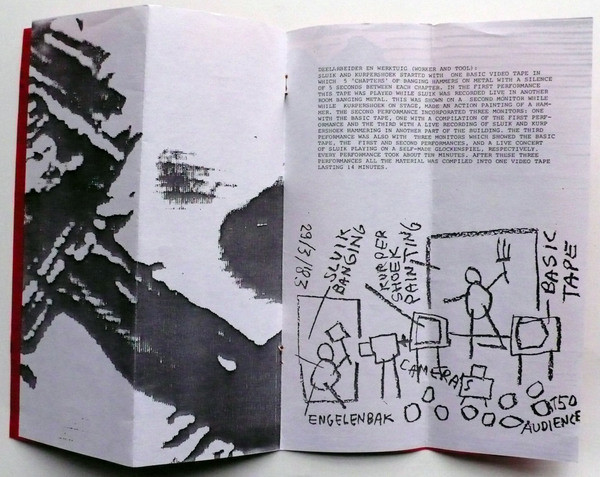 DEELARBEIDER EN WERKTUIG (WORKER AND TOOL):
SLUIK AND KURPERSHOEK STARTED WITH ONE BASIC VIDEO TAPE IN
WHICH 5 'CHAPTERS' OF BANGING HAMMERS ON METAL WITH A SILENCE
OF 5 SECONDS BETWEEN EACH CHAPTER. IN THE FIRST PERFORMANCE
THIS TAPE WAS PLAYED WHILE SLUIK WAS RECORDED LIVE IN ANOTHER
ROOM BANGING METAL. THIS WAS SHOWN ON A SECOND MONITOR WHILE
WHILE KURPERSHOEK ON STAGE, MADE AN ACTION PAINTING OF A HAM-
MER. THE SECOND PERFORMANCE INCORPORATED THREE MONITORS: ONE
WITH THE BASIC TAPE, ONE WITH A COMPILATION OF THE FIRST PERF-
ORMANCE AND THE THIRD WITH A LIVE RECORDING OF SLUIK AND KURP
ERSHOEK HAMMERING IN ANOTHER PART OF THE BUILDING. THE THIRD
PERFOMANCE WAS ALSO WITH THREE MONITORS WHICH SHOWED THE BASIC
TAPE, THE FIRST AND SECOND PERFORMANCES, AND A LIVE CONCERT
OF SLUIK PLAYING ON A SELF-MADE GLOCKENSPIEL, RESPECTIVELY.
EVERY PERFORMANCE TOOK ABOUT TEN MINUTES. AFTER THESE THREE
PERFORMANCES ALL THE MATERIAL WAS COMPILED INTO ONE VIDEO TAPE
LASTING 14 MINUTES.
29/3/83
SLUIK
BANGING
KURPER
SHOEK
PAINTING
BASIC
TAPE
CAMERA'S
ENGELENBAK
±150
AUDIENCE